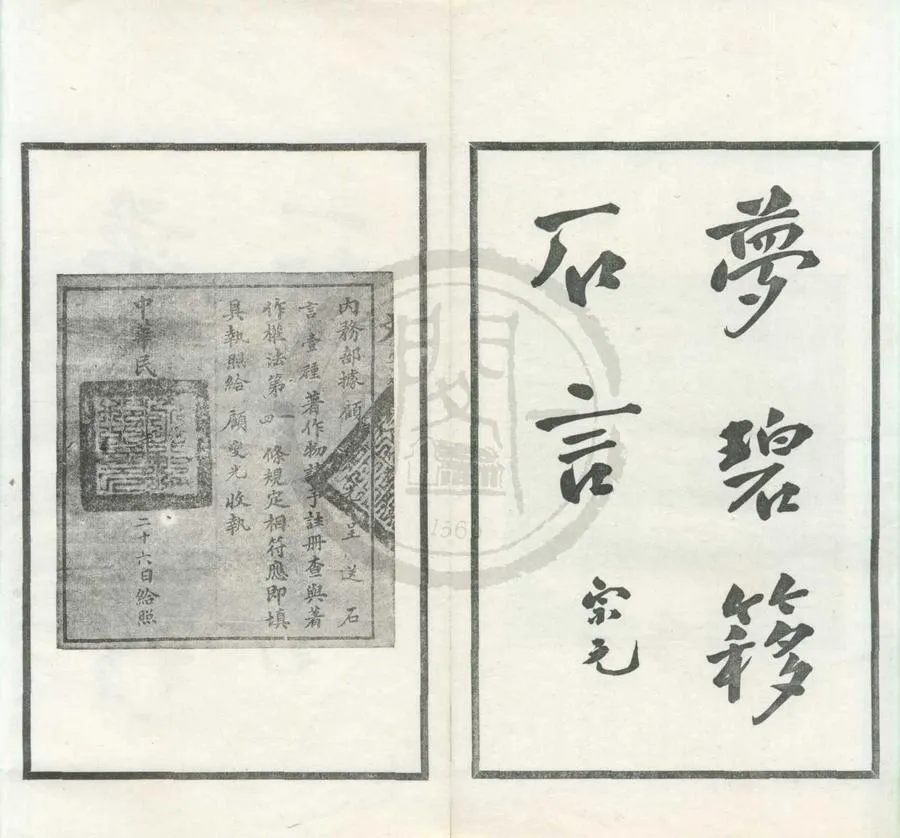 夢碧簃
石言
宗元
內務部據顧呈送石
言壹種著作物請予註冊查與著
作權法第四條規定相符應即填
具執照給顧燮光收執
中華民
二十六日給照